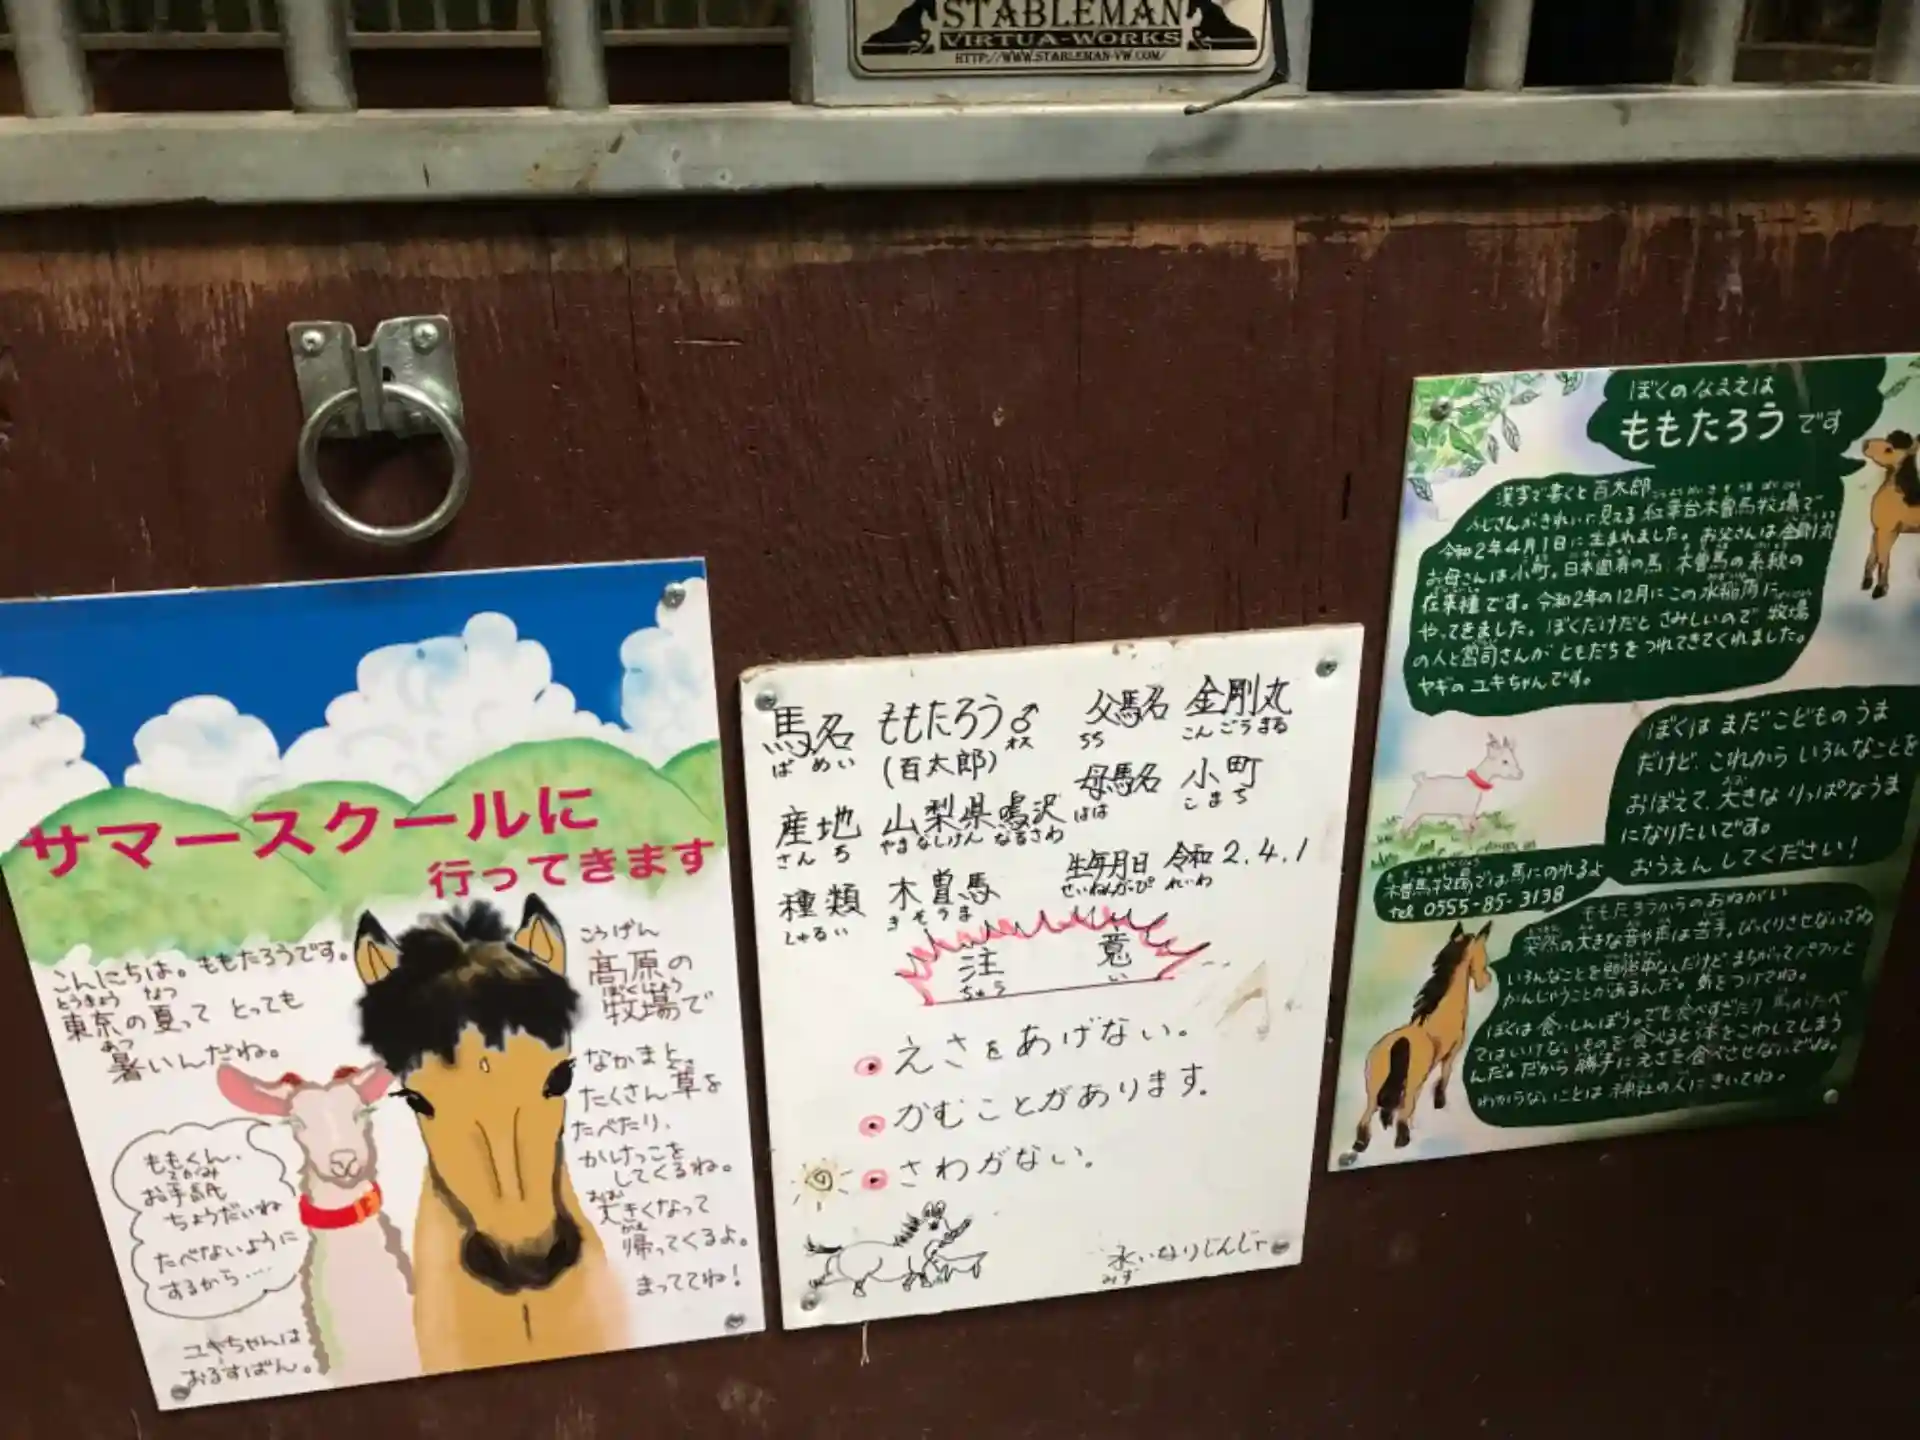 STABLEMAN
VIRTUA-WORKS
HTTP://WWW.STABLEMAN-VW.COM/
サマースクールに
行ってきます
こんにちは。ももたろうです。
とうきょう なつ
東京の夏って とっても
あつ
暑いんだね。
ももくん、
てがみ
お手紙
ちょうだいね
たべないように
するから‥‥
ユキちゃんは
おるすばん。
こうげん
高原の
ぼくじょう
牧場で
なかまと
たくさん草を
たべたり、
かけっこを
してくるね。
おお
大きくなって
かえ
帰ってくるよ。
まっててね!
馬名 ももたろう♂
ばめい オス
(百太郎)
産地 山梨県鳴沢
さんち やまなしけん なるさわ
種類 木曽馬
しゅるい きそうま
父馬名 金剛丸
ちち こんごうまる
母馬名 小町
はは こまち
生年月日 令和2.4.1
せいねんがっぴ れいわ
注意
ちゅうい
えさをあげない。
かむことがあります。
さわがない。
水いなりじんじゃ
みず
ぼくのなまえは
ももたろうです
漢字で書くと百太郎
ふじさんがきれいに見える紅葉台木曽馬牧場で
令和2年4月1日に生まれました。お父さんは金剛丸
お母さんは小町。日本固有の馬 木曽馬の系統の
在来種です。令和2年の12月にこの水稲荷に
やってきました。ぼくだけだと さみしいので 牧場
の人と宮司さんが ともだちをつれてきてくれました。
ヤギのユキちゃんです。
ぼくは まだ こどものうま
だけど、これから いろんなことを
おぼえて、大きな りっぱなうま
になりたいです。
おうえん してください!
木曽馬牧場では馬にのれるよ
tel 0555-85-3138
ももたろうからのおねがい
突然の大きな音や声は苦手。びっくりさせないでね
いろんなことを勉強中なんだけど まちがってパクッと
かんじゃうことがあるんだ。気をつけてね。
ぼくは食いしんぼう。でも食べすぎたり 馬がたべ
てはいけないものを食べると体をこわしてしまう
んだ。だから勝手にえさを食べさせないでね。
わからないことは神社の人にきいてね。